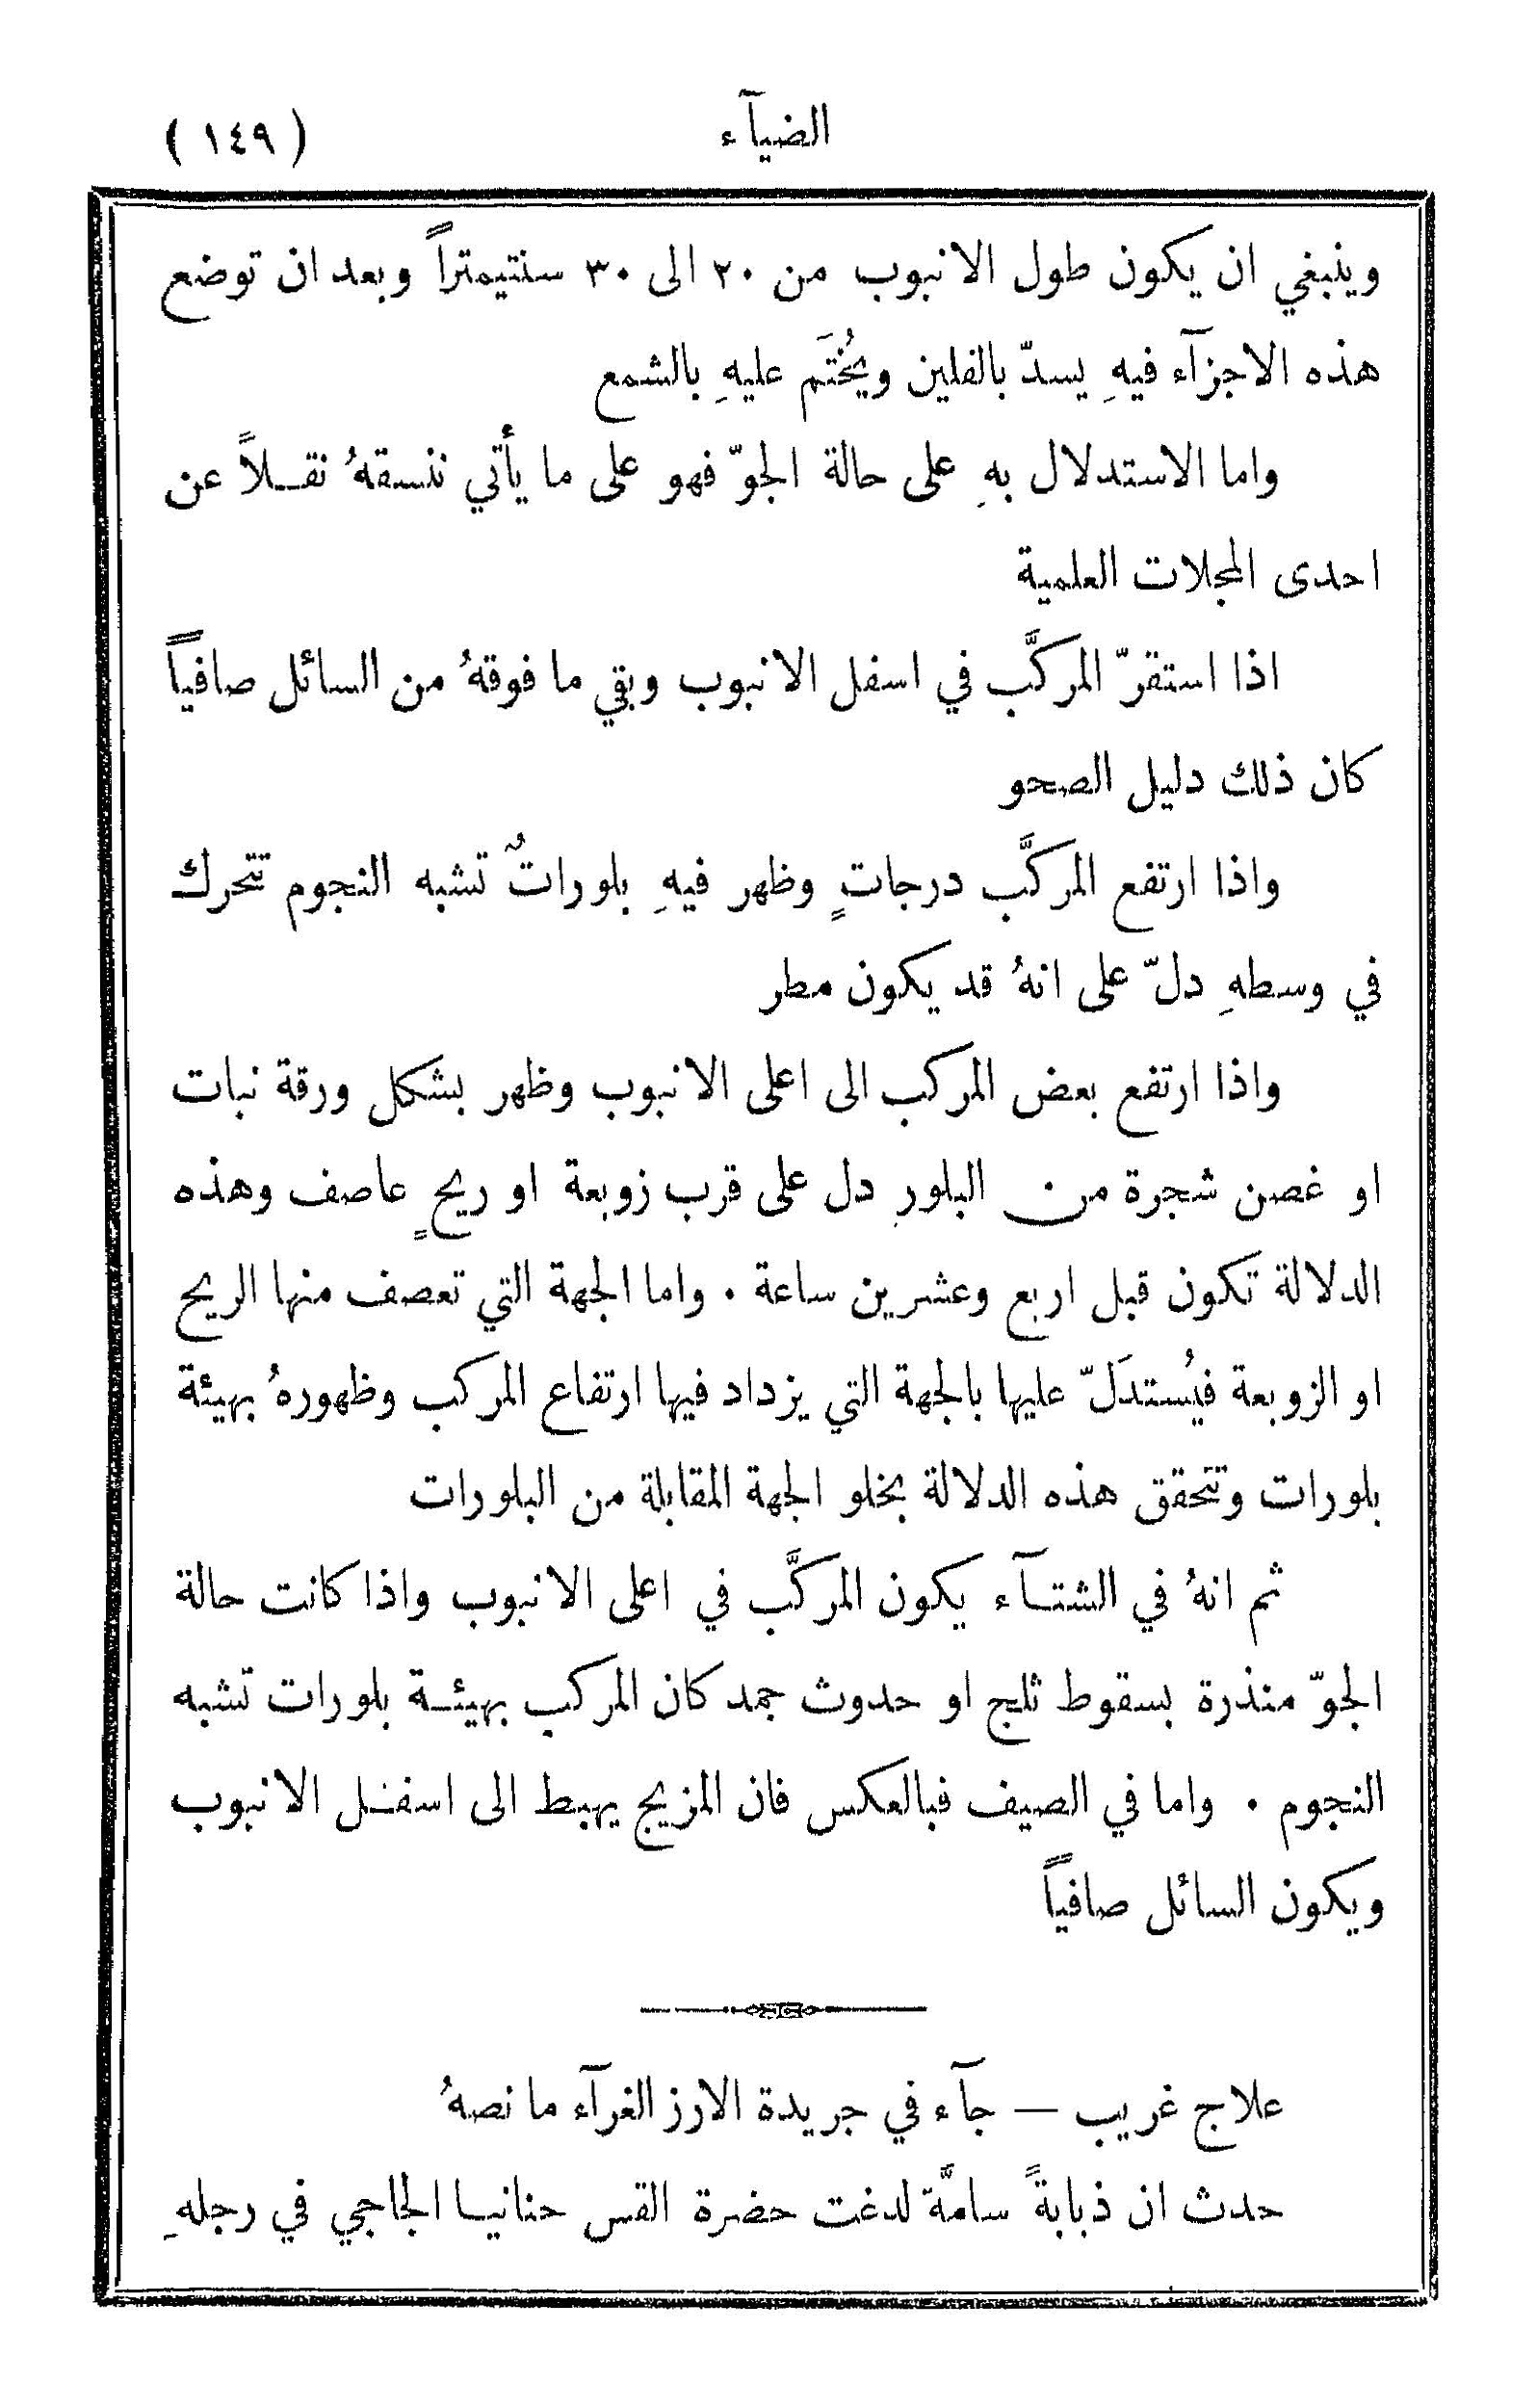 الضيآء
( ١٤٩ )
وينبغي ان يكون طول الانبوب من ٢٠ الى ٣٠ سنتيمتراً وبعد ان توضع
هذه الاجزآء فيهِ يسدّ بالفلين ويُختَم عليهِ بالشمع
واما الاستدلال بهِ على حالة الجوّ فهو على ما يأتي ننسقهُ نقـلاً عن
احدى المجلات العلمية
اذا استقرّ المركَّب في اسفل الانبوب وبقي ما فوقهُ من السائل صافياً
كان ذلك دليل الصحو
واذا ارتفع المركَّب درجاتٍ وظهر فيهِ بلوراتٌ تشبه النجوم تتحرك
في وسطهِ دلّ على انهُ قد يكون مطر
واذا ارتفع بعض المركب الى اعلى الانبوب وظهر بشكل ورقة نبات
او غصن شجرة من البلورِ دل على قرب زوبعة او ريحٍ عاصف وهذه
الدلالة تكون قبل اربع وعشرين ساعة . واما الجهة التي تعصف منها الريح
او الزوبعة فيُستدَلّ عليها بالجهة التي يزداد فيها ارتفاع المركب وظهورهُ بهيئة
بلورات وتتحقق هذه الدلالة بخلو الجهة المقابلة من البلورات
ثم انهُ في الشتـآء يكون المركَّب في اعلى الانبوب واذا كانت حالة
الجوّ منذرة بسقوط ثلج او حدوث جمد كان المركب بهيئـة بلورات تشبه
النجوم . واما في الصيف فبالعكس فان المزيج يهبط الى اسفـل الانبوب
ويكون السائل صافياً
علاج غريب — جآء في جريدة الارز الغرآء ما نصهُ
حدث ان ذبابةً سامَّة لدغت حضرة القس حنانيـا الجاجي في رجلهِ